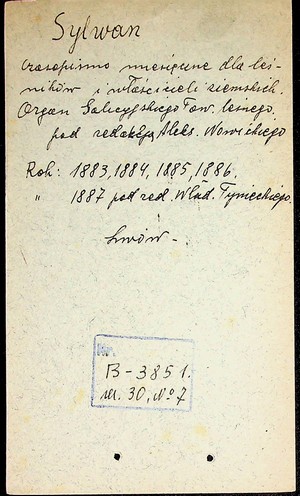 Sylwan
czasopismo miesięczne dla leś-
ników i właścicieli ziemskich.
Organ Galicyjskiego Tow. leśnego.
pod redakcją Aleks. Nowickiego
Rok: 1883, 1884, 1885, 1886.
" 1887 pod red. Wład. Tynieckiego.
Lwów.-
B-3851.
nr. 30, No 7